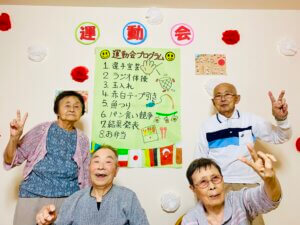 運動会
運動会プログラム
1.選手宣誓
2.ラジオ体操
3.玉入れ
4.赤白テープ引き
5.魚つり
6.パン食い競争
7.結果発表
8.お弁当